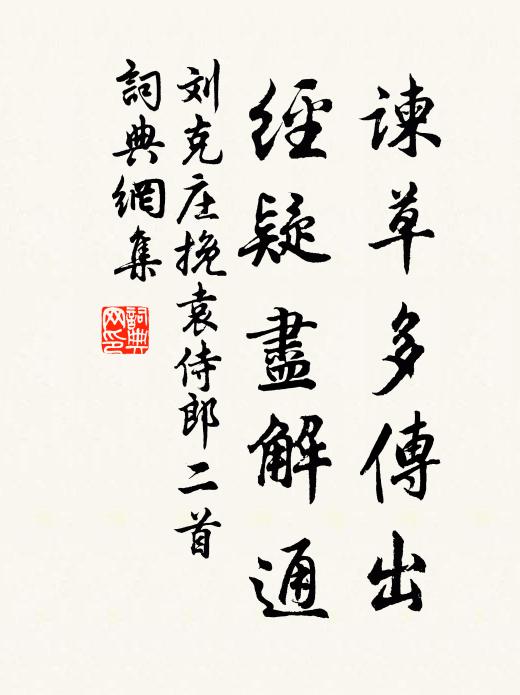 諫草多傳出
經疑盡解通
刘克庄挽袁侍郎二首
詞典網集
詞典
网印